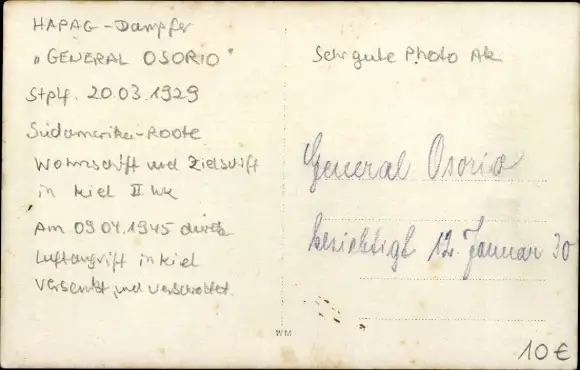 HAPAG-Dampfer
"GENERAL OSORIO"
Stplf. 20.03.1929
Südamerika-Route
Wohnschiff und Zielschiff
in Kiel II Wk
Am 09.04.1945 durch
Luftangriff in Kiel
versenkt, und verschrottet.
Sehr gute Photo Ak
General Osorio
besichtigt 12. Januar 30
WM
10 €